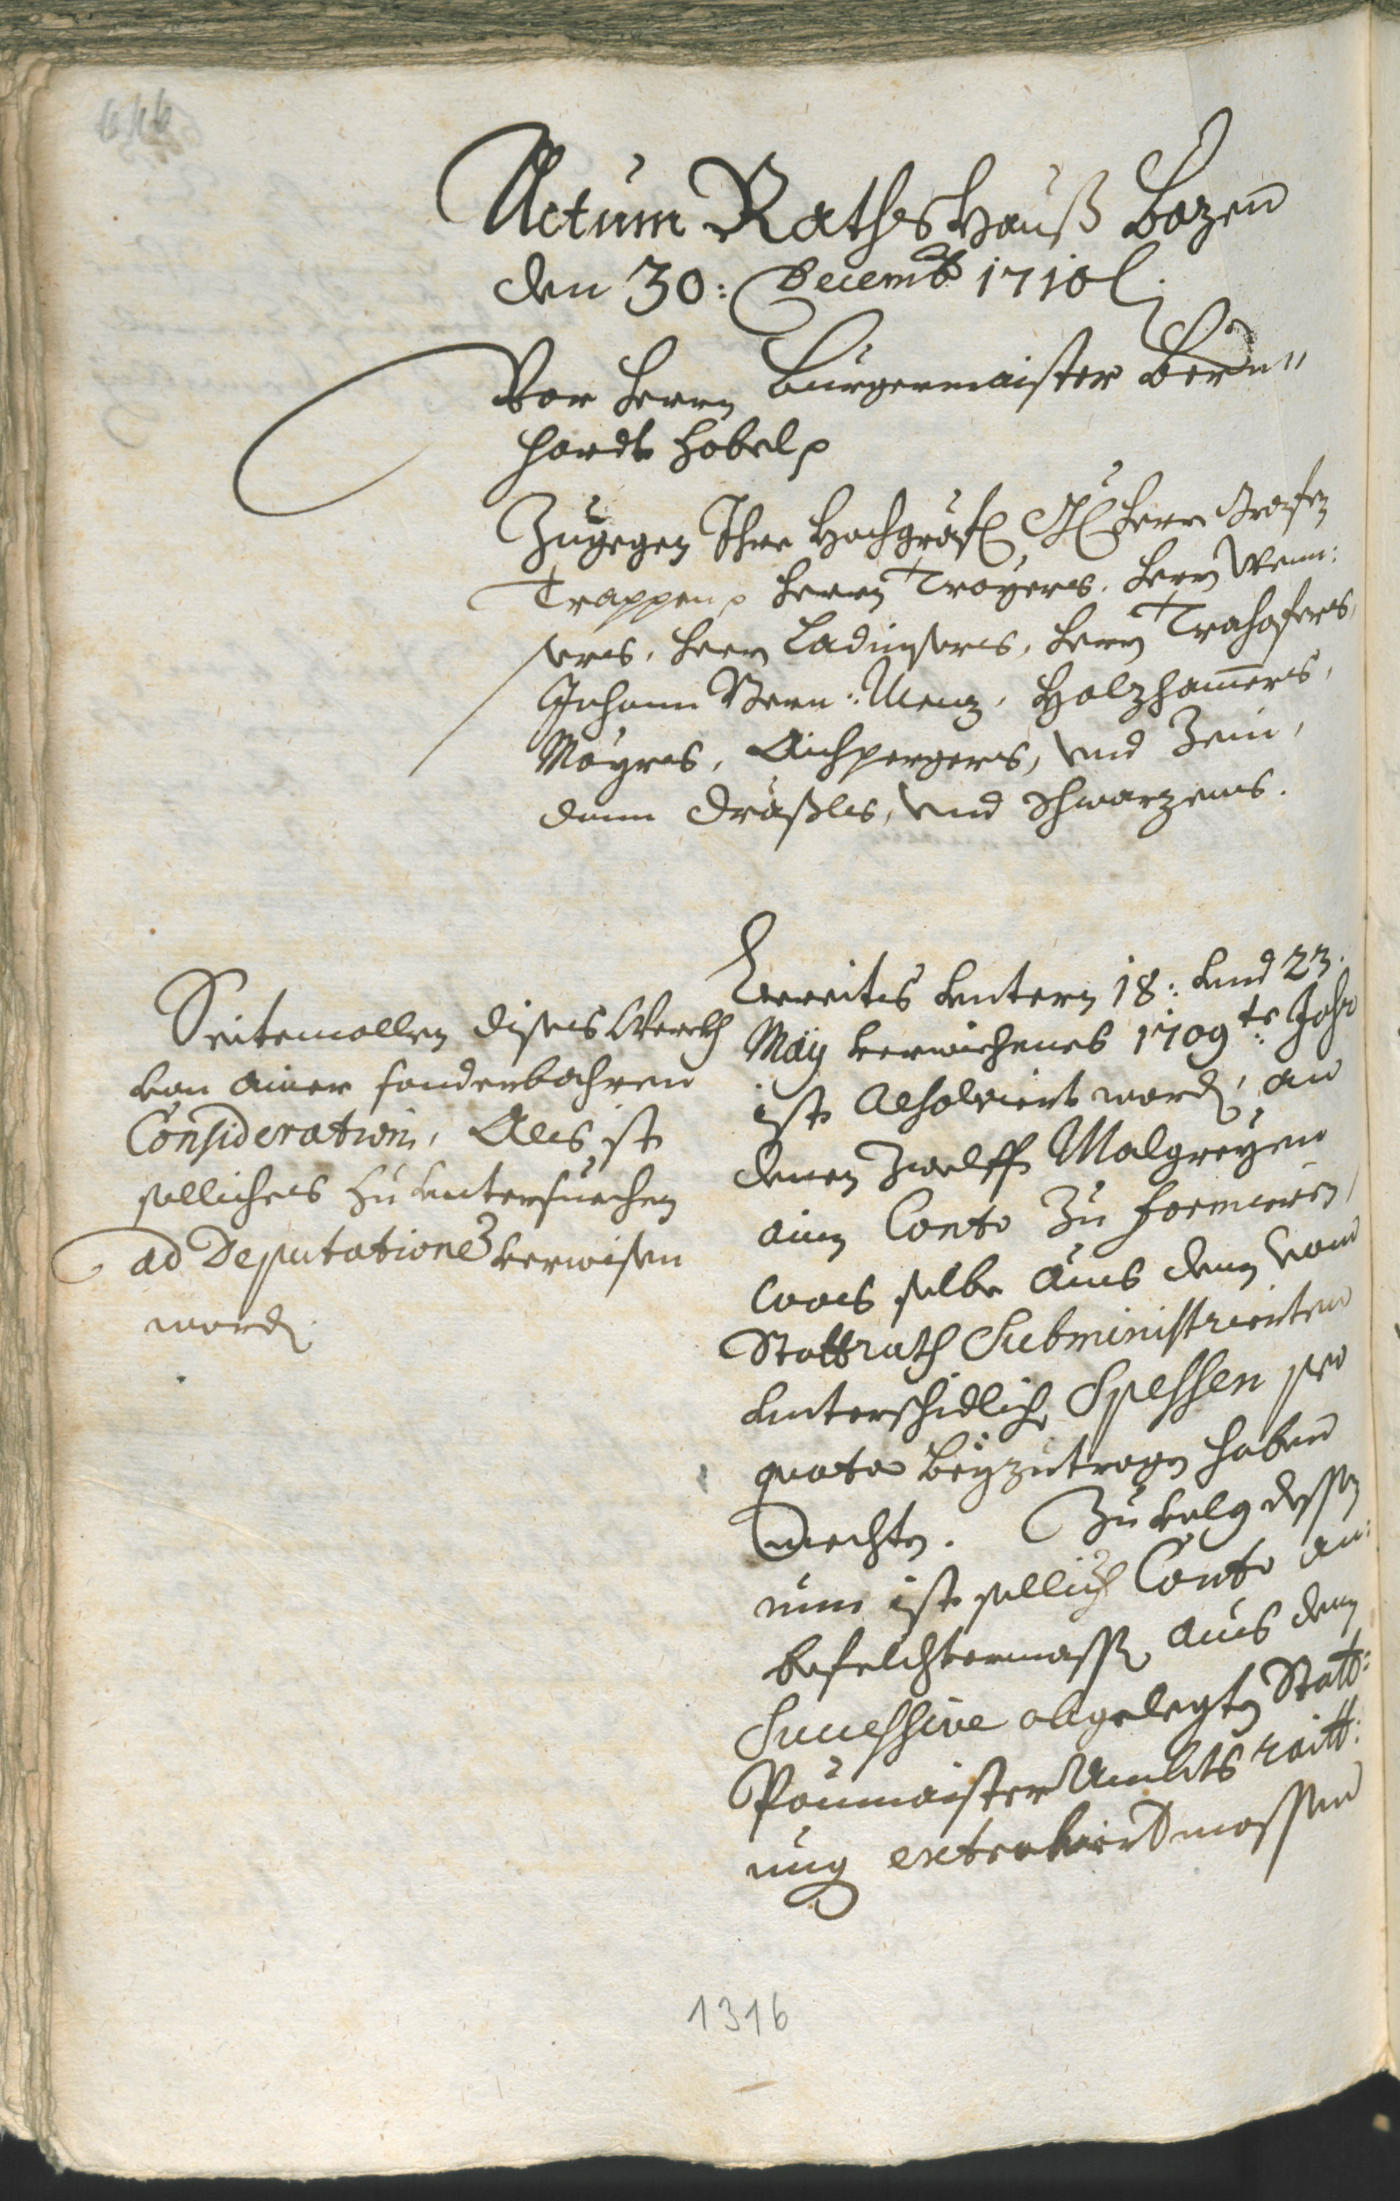 Actum Raths Hauß Bozen
den 30: Decemb 1710
Vor Herrn Burgermaister Bern¬
hardt Hobel
Zugegen Ihre Hochgräfl Herrn Grafen
Trappen Herrn Troyers, Herrn Wenn¬
sers, Herrn Ladinsers, Herrn Trahofers,
Johann Menz, Holzhamers,
Mayrs, Aichpergers, vnd Zein,
dann Dräxls, vnd Schwarzens.
Seitemallen dises Werch
von ainer sonderbahren
Consideration, Als ist
solliches zu untersuechen
ad Deputationē verwisen
word.
Bereits untern 18: und 23.
May verwichenes 1709ts Jahr
ist resolviert word, an
denen Zwelff Malgreyen
ain Conto zu formiern,
was selbe aus denen vom
Stattrath Subministrierten
unterschidlich Spessen pro
quota beyzutragen haben
mechten. Zuvolg dessen
nun ist sollich Conto an¬
befelchtermassen aus denen
Successive abgelegten Statt¬
Paumaister Ambts raitt¬
ung extrahiert massen
1316